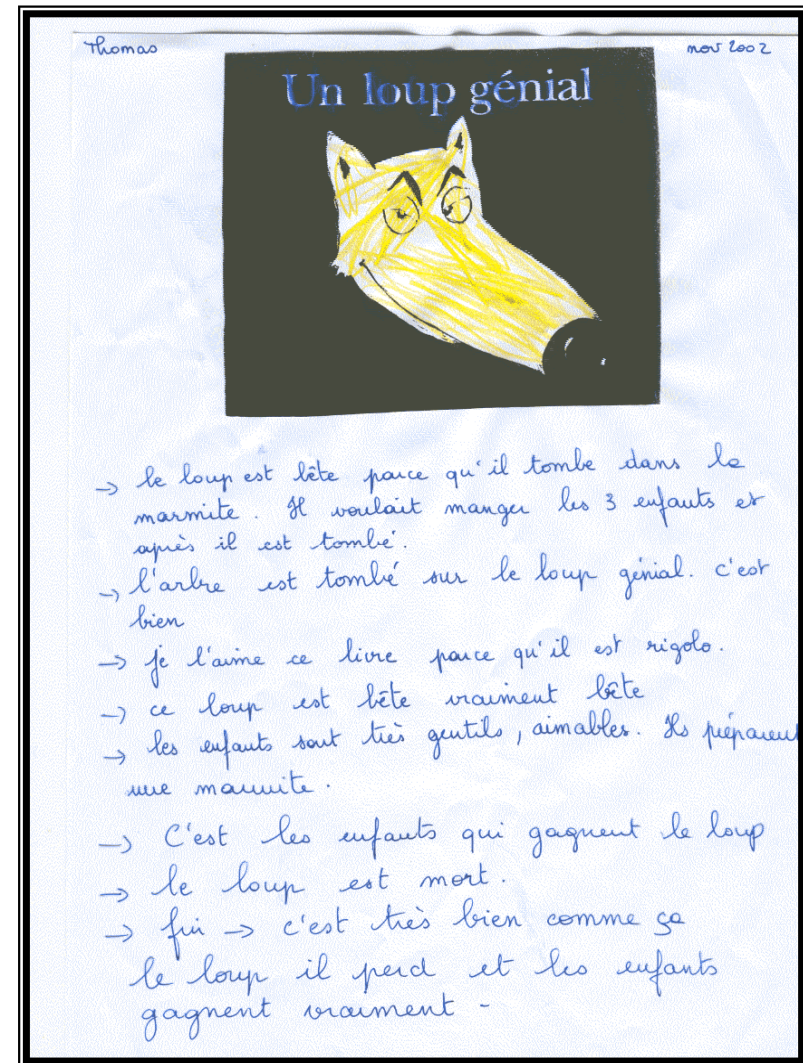 Thomas
nov 2002
Un loup génial
→ le loup est bête parce qu'il tombe dans la
marmite. Il voulait manger les 3 enfants et
après il est tombé.
→ l'arbre est tombé sur le loup génial. c'est
bien
→ je l'aime ce livre parce qu'il est rigolo.
→ ce loup est bête vraiment bête
→ les enfants sont très gentils, aimables. Ils préparent
une marmite.
→ C'est les enfants qui gagnent le loup
→ le loup est mort.
→ fin → c'est très bien comme ça
le loup il perd et les enfants
gagnent vraiment -